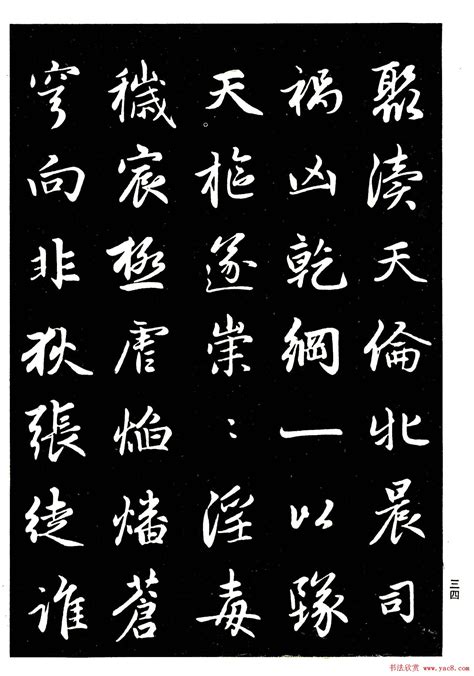 聚瀆天倫牝晨司
禍凶乾綱一以隊
天樞遂崇：淫毒
穢宸極虐焰燔蒼
穹向非狄張徒誰
三四
书法欣赏 www.yac8.com